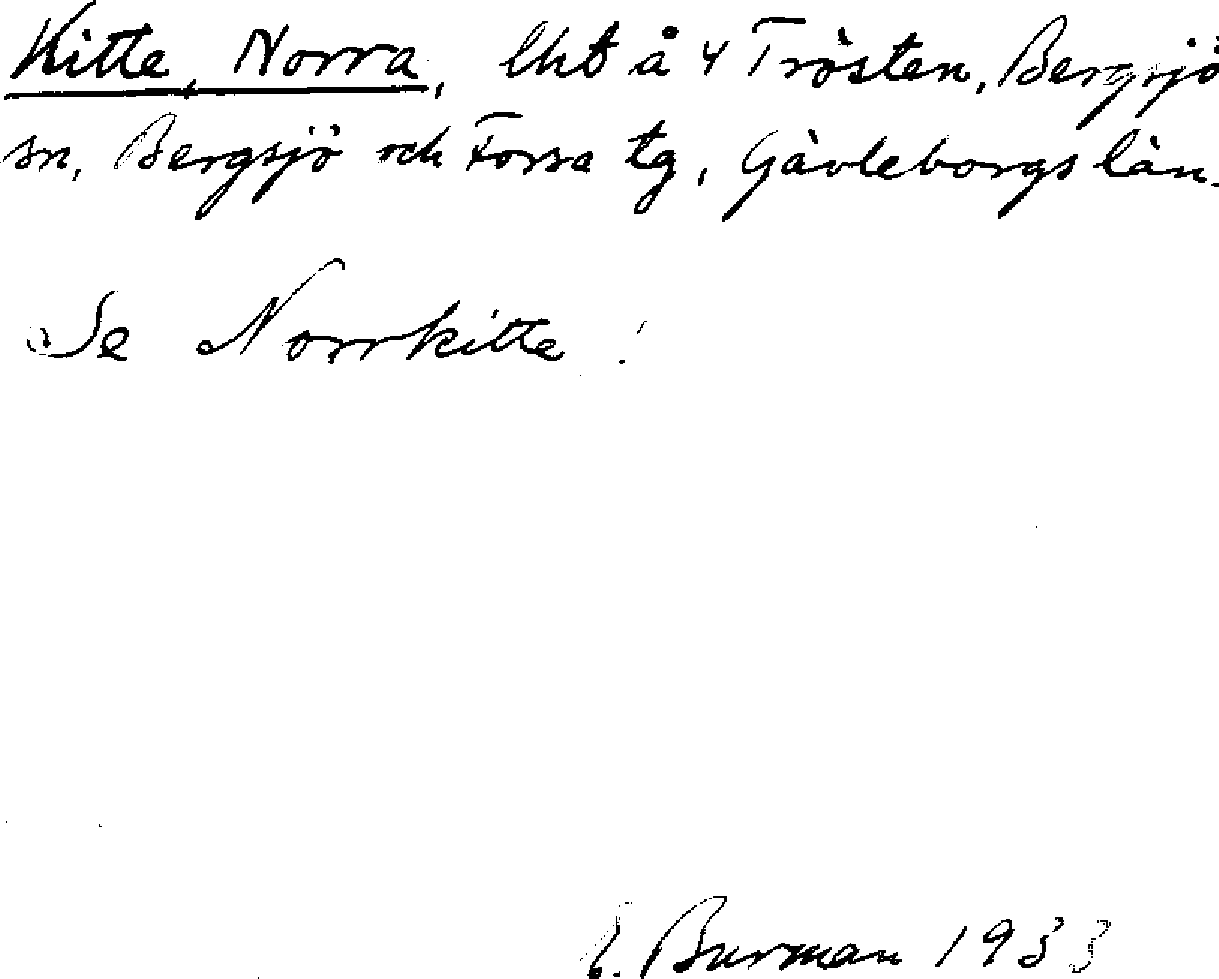 Kitte, Norra, lht å 4 Trösten, Bergsjö
sn, Bergsjö och Forsa tg, Gävleborgs län.
Se Norrkitte!
E. Burman 1933